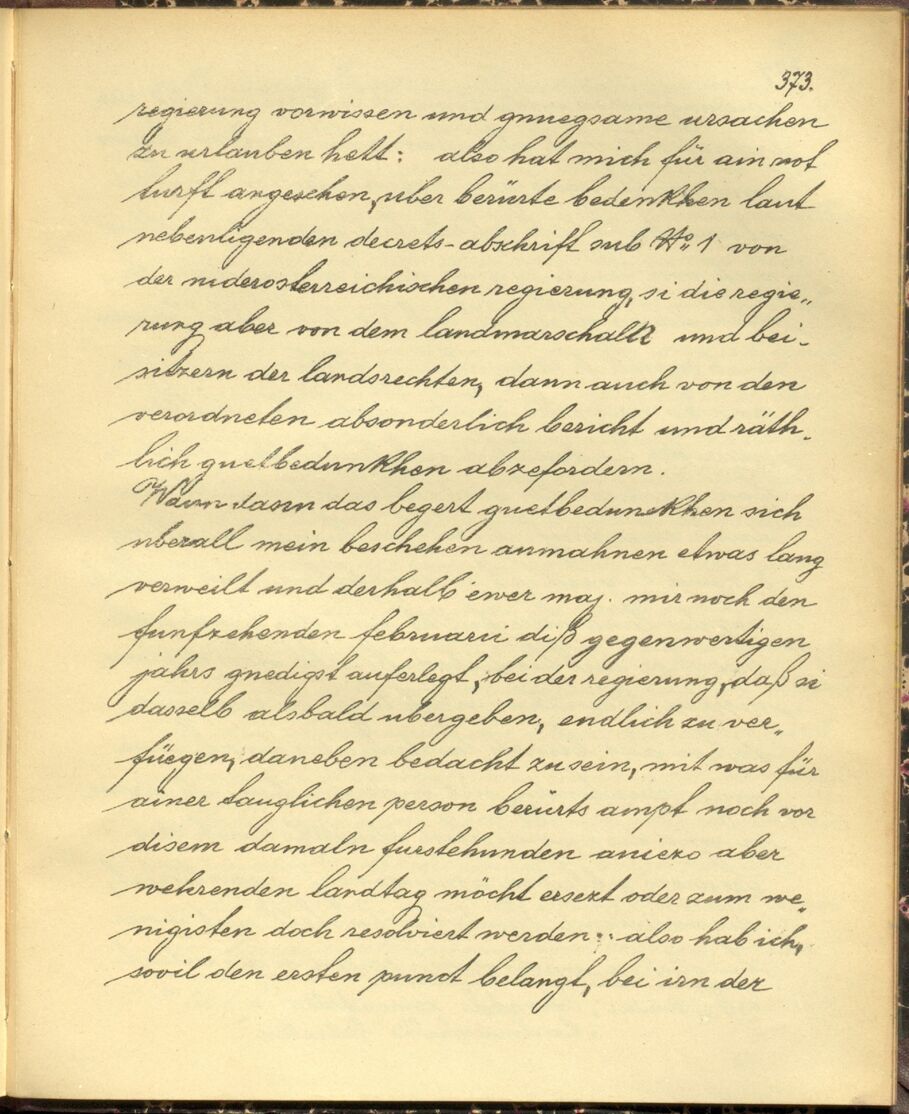 373.
regierung vorwissen und gnuegsame ursachen
zu urlauben hett: also hat mich für ain not
turft angesehen, uber berürte bedenkhen laut
nebenligenden decrets-abschrift sub No. 1 von
der niderosterreichischen regierung, si die regie„
rung aber von dem landmarschalh und bei-
sitzern der landsrechten, dann auch von den
verordneten absonderlich bericht und räth-
lich guetbedunkhen abzefordern.
Wann dann das begert guetbedunkhen sich
uberall mein beschehen anmahnen etwas lang
verweilt und derhalb ewer maj. mir noch den
funfzehenden februarii diß gegenwertigen
jahrs gnedigst auferlegt, bei der regierung, daß si
dasselb alsbald ubergeben, endlich zu ver„
füegen, daneben bedacht zu sein, mit was für
ainer tauglichen person berürts ampt noch vor
disem damaln furstehunden aniezo aber
wehrenden landtag möcht ersezt oder zum we„
nigisten doch resolviert werden: also hab ich,
sovil den ersten punct belangt, bei irn der